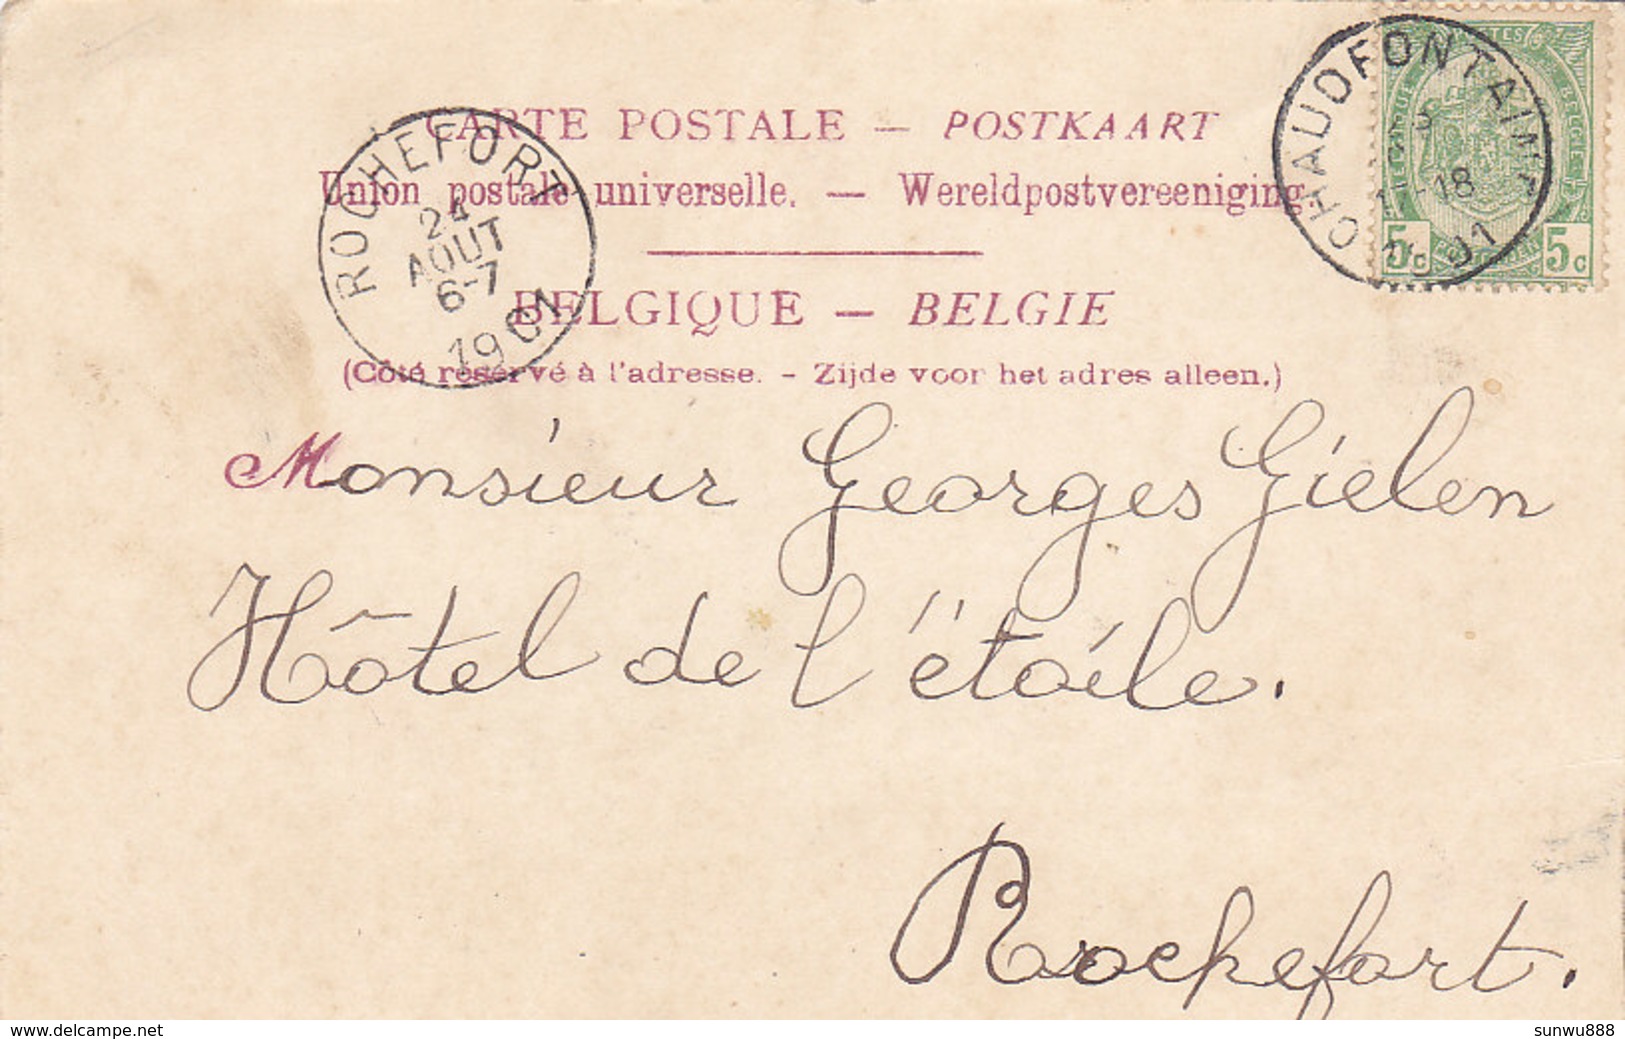 CARTE POSTALE — POSTKAART
Union postale universelle. — Wereldpostvereeniging.
BELGIQUE — BELGIE
(Côté réservé à l'adresse. - Zijde voor het adres alleen.)
ROCHEFORT
24
AOUT
6-7
1901
CHAUDFONTAINE
5c 5c
Monsieur Georges Gielen
Hôtel de l'étoile.
Rochefort.
delcampe.net
sunwu888